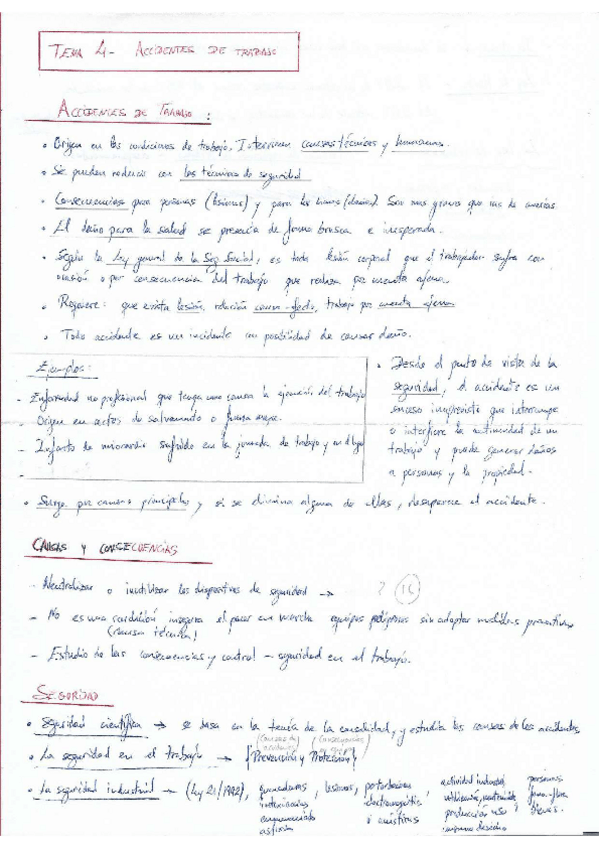 TEMA 4- ACCIDENTES DE TRABAJO
ACCIDENTES DE TRABAJO :
• Origen en las condiciones de trabajo. Intervienen causas técnicas y humanas.
• Se pueden reducir con las técnicas de seguridad
• Consecuencias para personas (lesiones) y para los bienes (daños). Son mas graves que las de averías
• El daño para la salud se presencia de forma brusca e inesperada.
• Según la Ley general de la Seg. Social, es toda lesión corporal que el trabajador sufra con
ocasión o por consecuencia del trabajo que realiza por cuenta ajena.
• Requiere: que exista lesión, relación causa-efecto, trabajo por cuenta ajena
• Todo accidente es un incidente con posibilidad de causar daño.
Ejemplos:
- Enfermedad no profesional que tenga como causa la ejecución del trabajo
- Origen en actos de salvamento o fuerza mayor.
- Infarto de miocardio sufrido en la jornada de trabajo y en el lugar
-
• Desde el punto de vista de la
seguridad, el accidente es un
suceso imprevisto que interrumpe
o interfiere la continuidad de un
trabajo y puede generar daños
a personas y la propiedad.
• Surge por causas principales y si se elimina alguna de ellas, desaparece el accidente.
CAUSAS Y CONSECUENCIAS
- Neutralizar o inutilizar los dispositivos de seguridad → ? (1C)
- No es una condición insegura el poner en marcha equipos peligrosos sin adoptar medidas preventivas
(causa técnica)
- Estudio de las consecuencias y control - seguridad en el trabajo.
SEGURIDAD
• Seguridad científica → se basa en la teoría de la causalidad, y estudia las causas de los accidentes
(Causas de accidentes) (Consecuencias)
• La seguridad en el trabajo → (Prevención y Protección)
• La seguridad industrial → (Ley 21/1992), quemaduras, lesiones, perturbaciones, actividad industrial personas
intoxicaciones electromagnéticas utilización, flora-fauna
envenenamiento o acústicas producción uso bienes.
asfixia